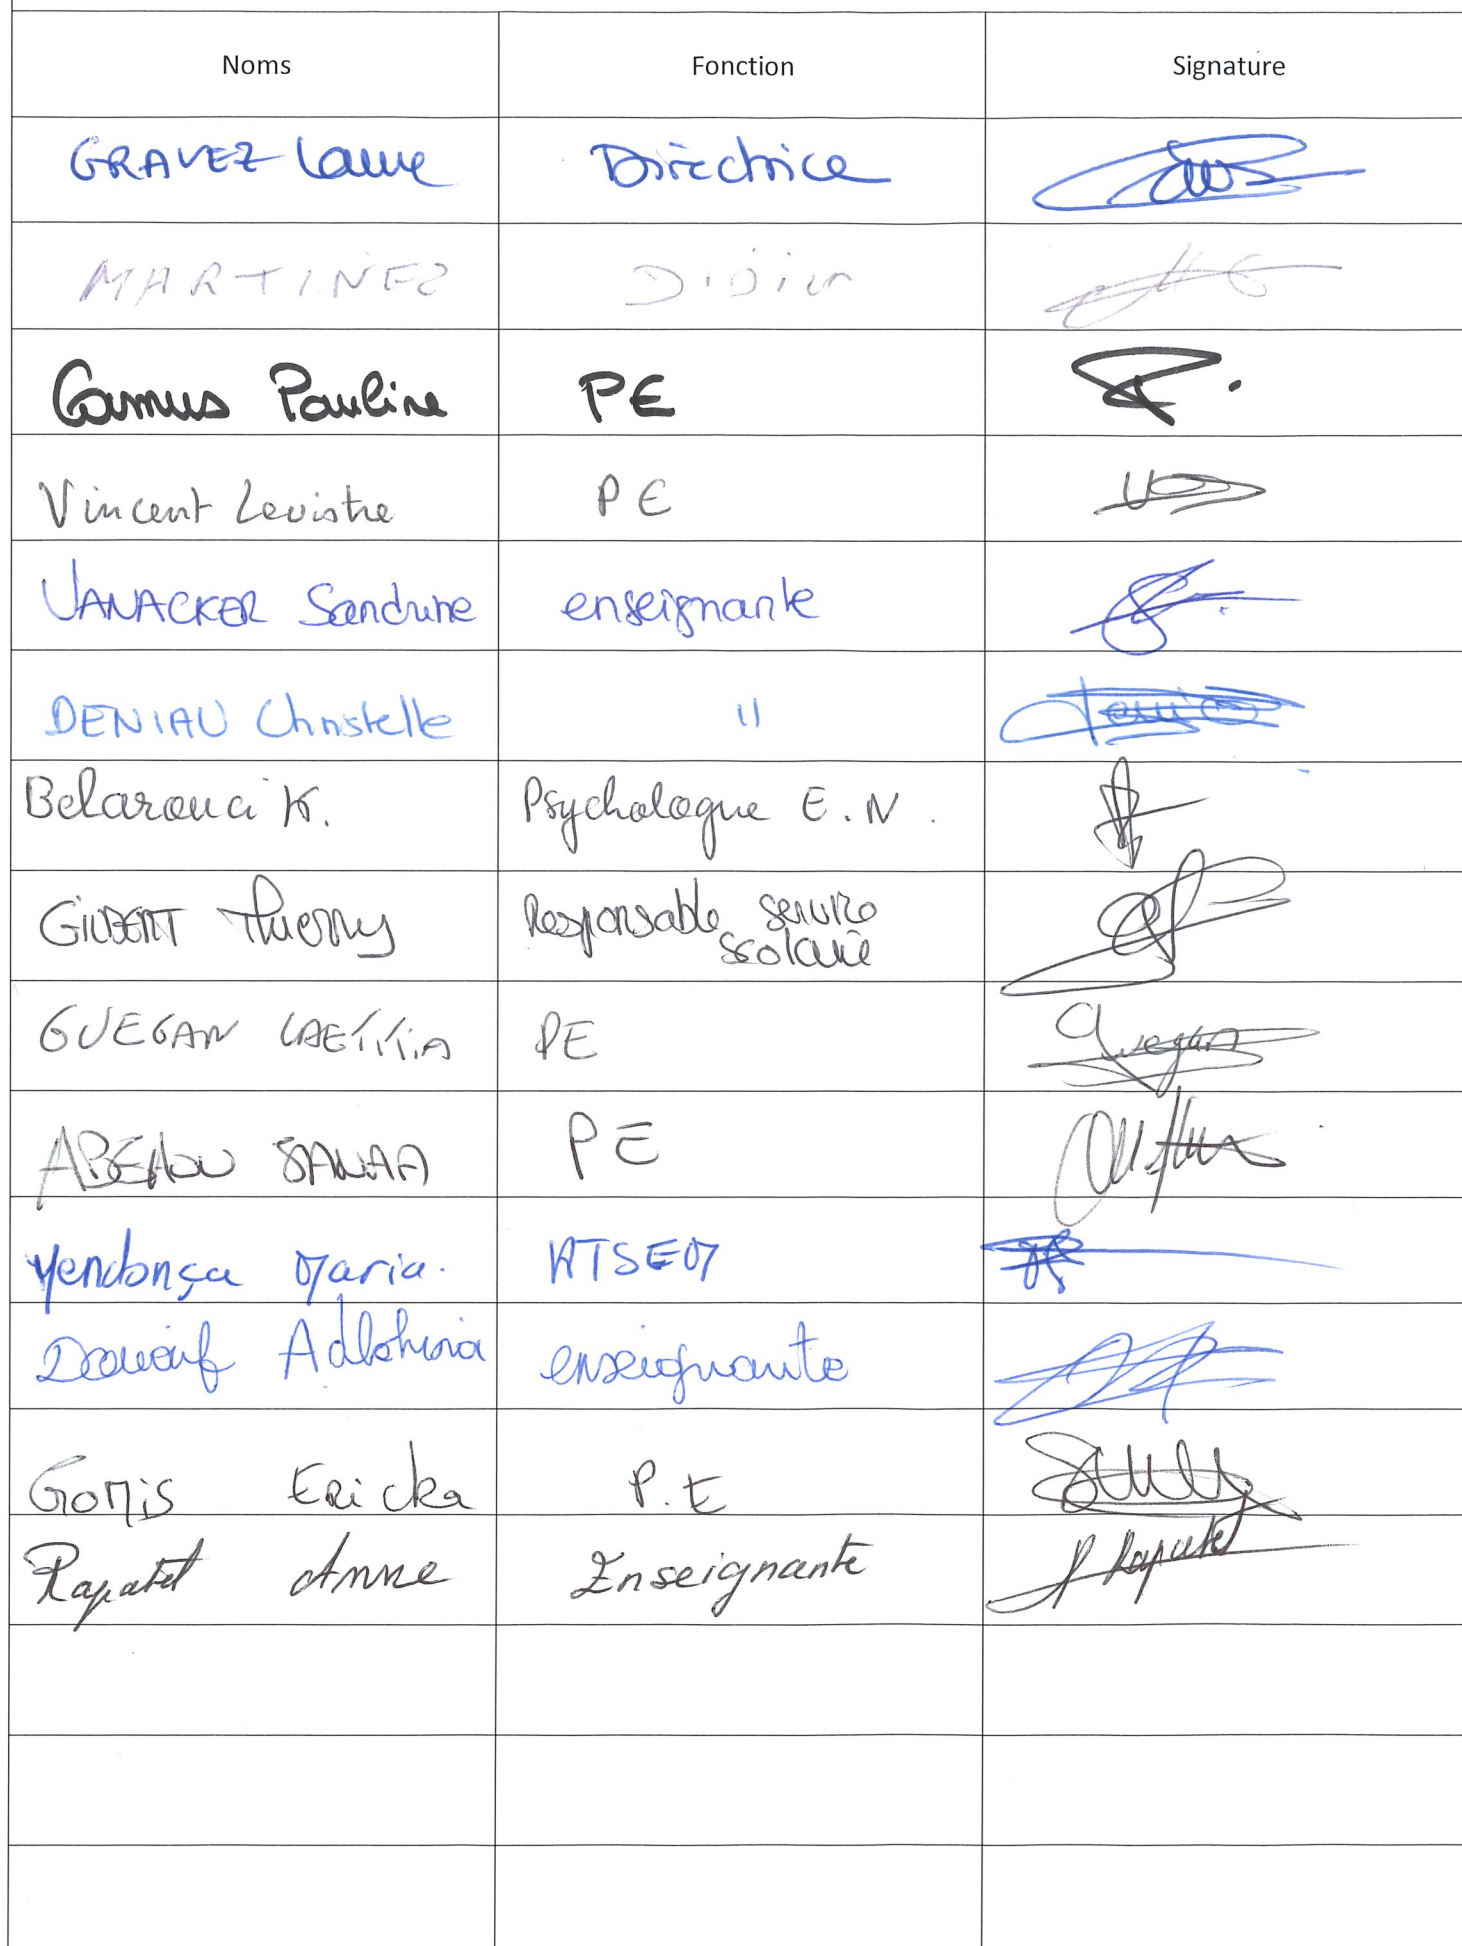 Noms Fonction Signature
GRAVEZ Laure Directrice
MARTINEZ Didier
Camus Pauline PE
Vincent Levistre PE
VANACKER Sandrine enseignante
DENIAU Christelle "
Belarouci K. Psychologue E.N.
GILBERT Thierry Responsable service
scolaire
GUEGAN LAETITIA PE Guegan
SANAA PE
Mendonça Maria. ATSEM
enseignante
Gomis Ericka P.E
Rapatel Anne Enseignante A Rapatel